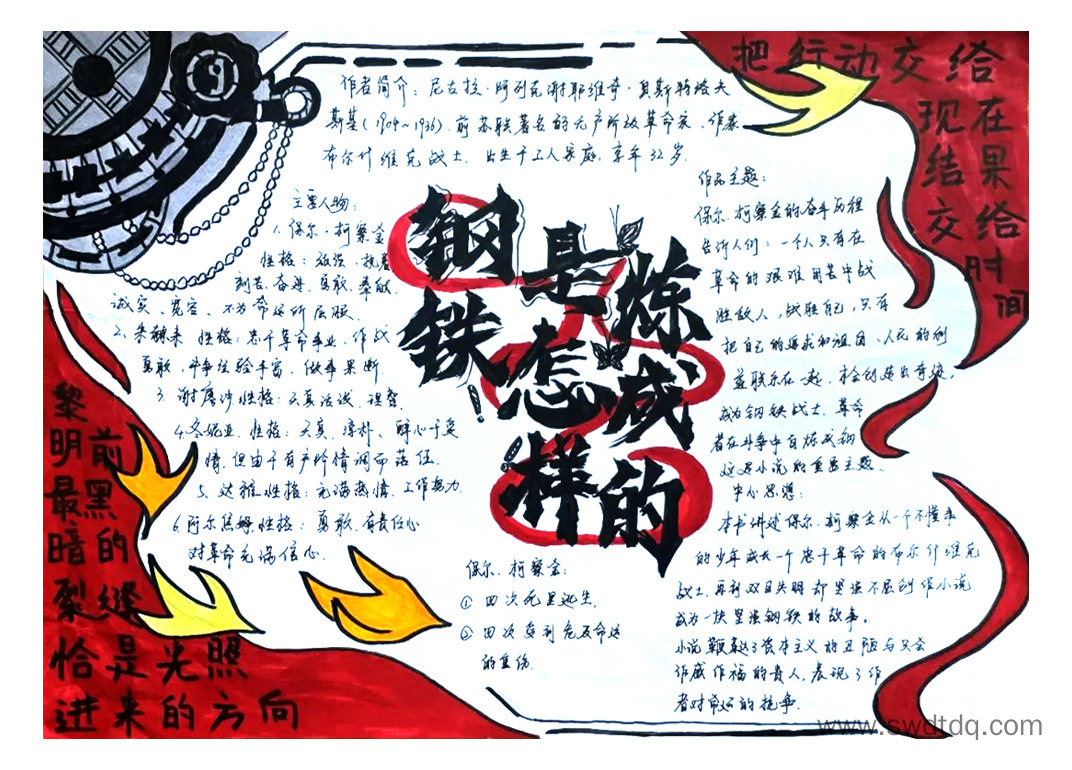 把行动交给
现在
结果
交给
时间
作者简介：尼古拉·阿列克谢耶维奇·奥斯特洛夫
斯基(1904~1936)，前苏联著名的无产阶级革命家、作家
布尔什维克战士，出生于工人家庭，享年32岁。
主要人物：
1.保尔·柯察金
性格：顽强、执着
刻苦、奋进、勇敢、奉献
诚实、宽容、不为命运所屈服
2.朱赫来 性格：忠于革命事业、作战
勇敢，斗争经验丰富，做事果断
3.谢廖沙性格：天真活泼、坦率
4.冬妮亚，性格：天真、淳朴、醉心于爱
情，但由于有产阶情调而落伍
5.达雅性格：充满热情、工作努力
6.阿尔焦姆性格：勇敢、有责任心
对革命充满信心
钢铁是怎样炼成的
保尔、柯察金：
① 四次死里逃生
② 四次受到危及命运
的重伤
作品主题：
保尔、柯察金的奋斗历程
告诉人们：一个人只有在
革命的艰难困苦中战
胜敌人，战胜自己，只有
把自己的追求和祖国、人民的利
益联系在一起，才会创造出奇迹，
成为钢铁战士。革命
者在斗争中百炼成钢
这是小说的重要主题。
中心思想：
本书讲述保尔、柯察金从一个不懂事
的少年成长一个忠于革命的布尔什维克
战士，再到双目失明却坚强不屈创作小说
成为一块坚强钢铁的故事。
小说鞭挞了资本主义的丑陋与只会
作威作福的贵人，表现了作
者对命运的抗争
黎明前
最黑暗的
裂缝
恰是光照
进来的方向
www.swdtdq.com